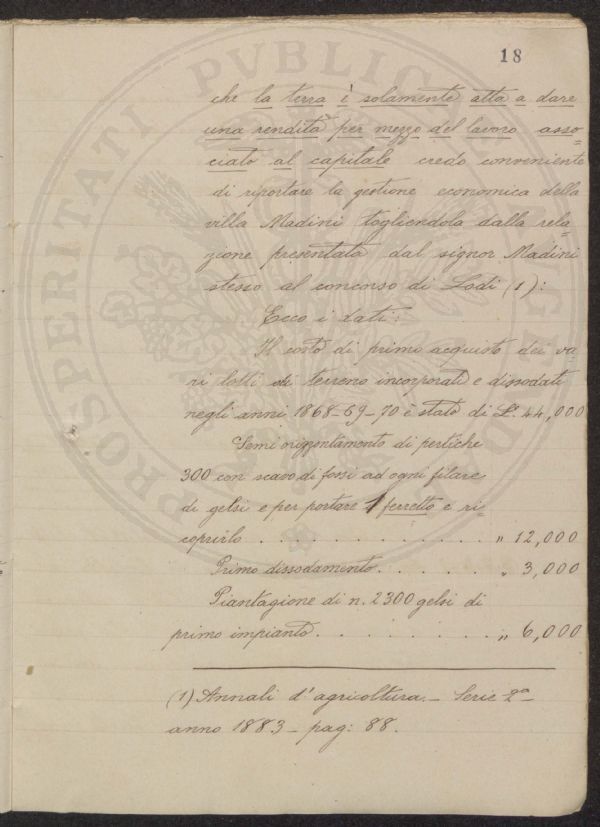 18
che la terra è solamente atta a dare
una rendita per mezzo del lavoro asso-
ciato al capitale credo conveniente
di riportare la gestione economica della
villa Madini togliendola dalla rela-
zione presentata dal signor Madini
stesso al concorso di Lodi (1):
Ecco i dati:
Il costo di primo acquisto dei va
ri lotti di terreno incorporati e dissodati
negli anni 1868-69-70 è stato di L. 44,000
Semi orizzontamento di pertiche
300 con scavo di fossi ad ogni filare
di gelsi e per portare il ferretto e ri-
coprirlo . . . . . . . . . . . . " 12,000
Primo dissodamento . . . . . . " 3,000
Piantagione di n. 2300 gelsi di
primo impianto . . . . . . . . " 6,000
(1) Annali d'agricoltura - Serie 2ª -
anno 1883 - pag: 88.
PROSPERITATI PVBLICAE